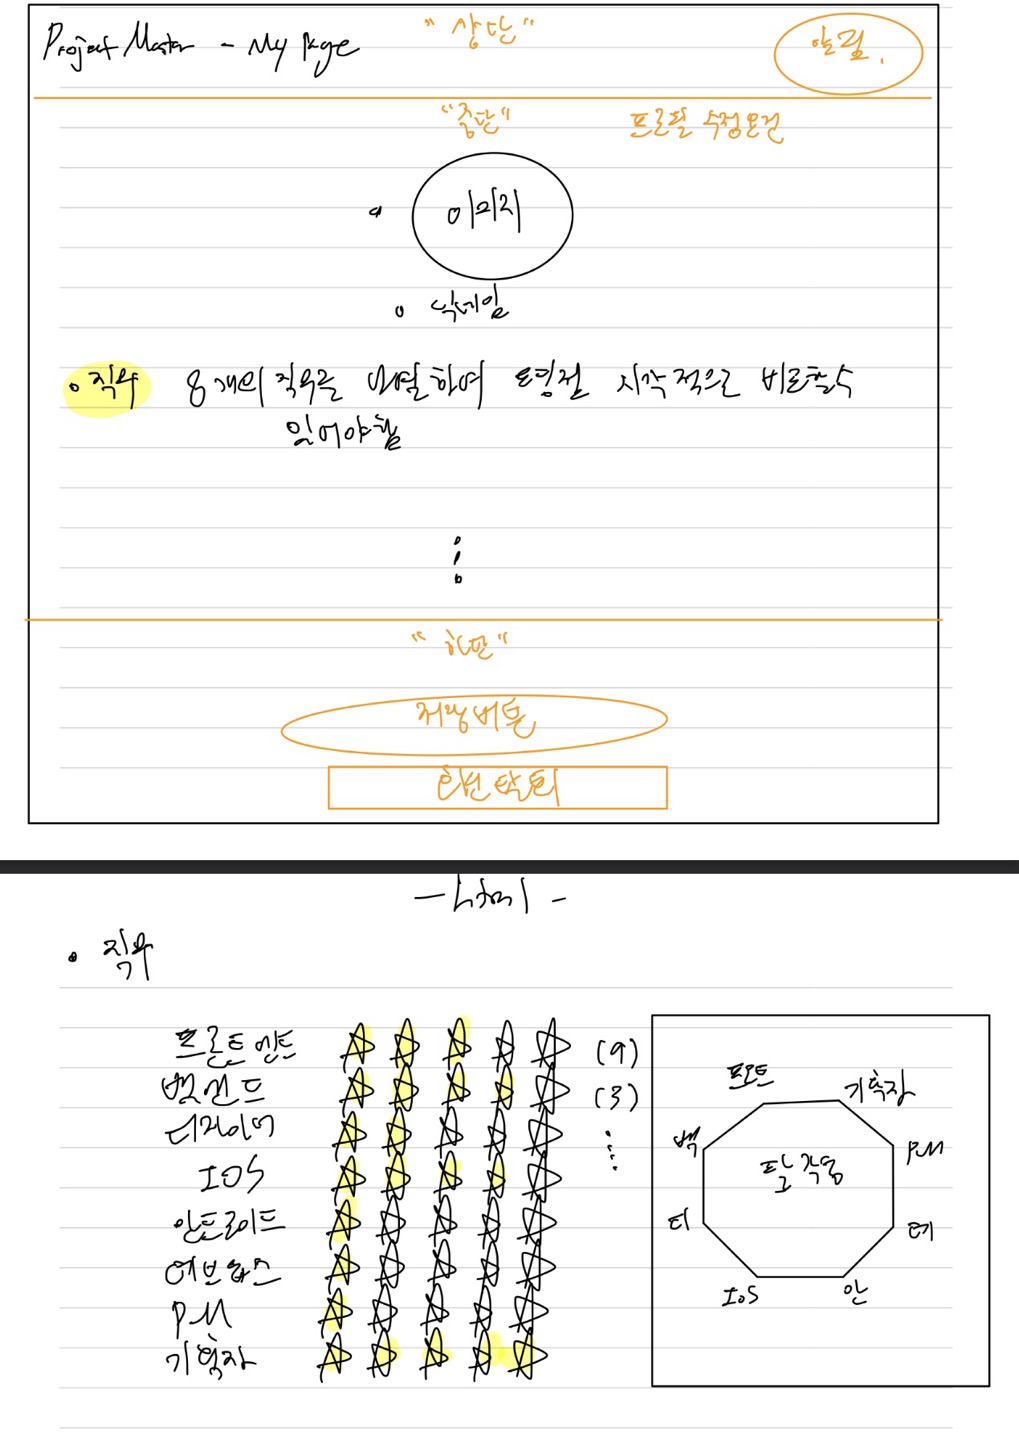 Project Master - My Page
"상단"
알림.
"중단"
프로필 수정요건
이미지
닉네임
직무 8개의 직무를 나열하여 평점 시각적으로 비교할수
있어야함
"하단"
저장버튼
회원탈퇴
직무
프론트엔드 (9)
백엔드 (3)
디자이너
IOS
안드로이드
데브옵스
PM
기획자
프론트
기획자
백
PM
팔각형
디
데
IOS
안